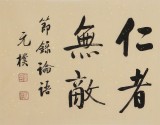 仁者
無敵
節錄論語
元樸